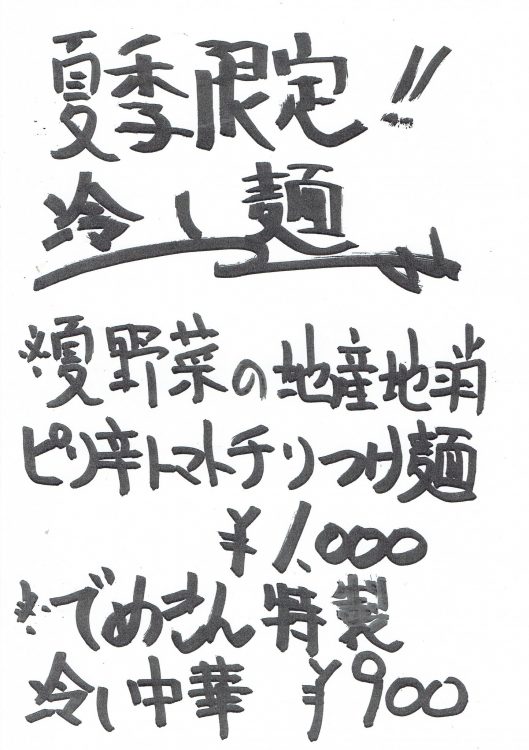 夏季限定!!
冷し麺
※夏野菜の地産地消
ピリ辛トマトチリつけ麺
¥1,000
※でめきん特製
冷し中華 ¥900